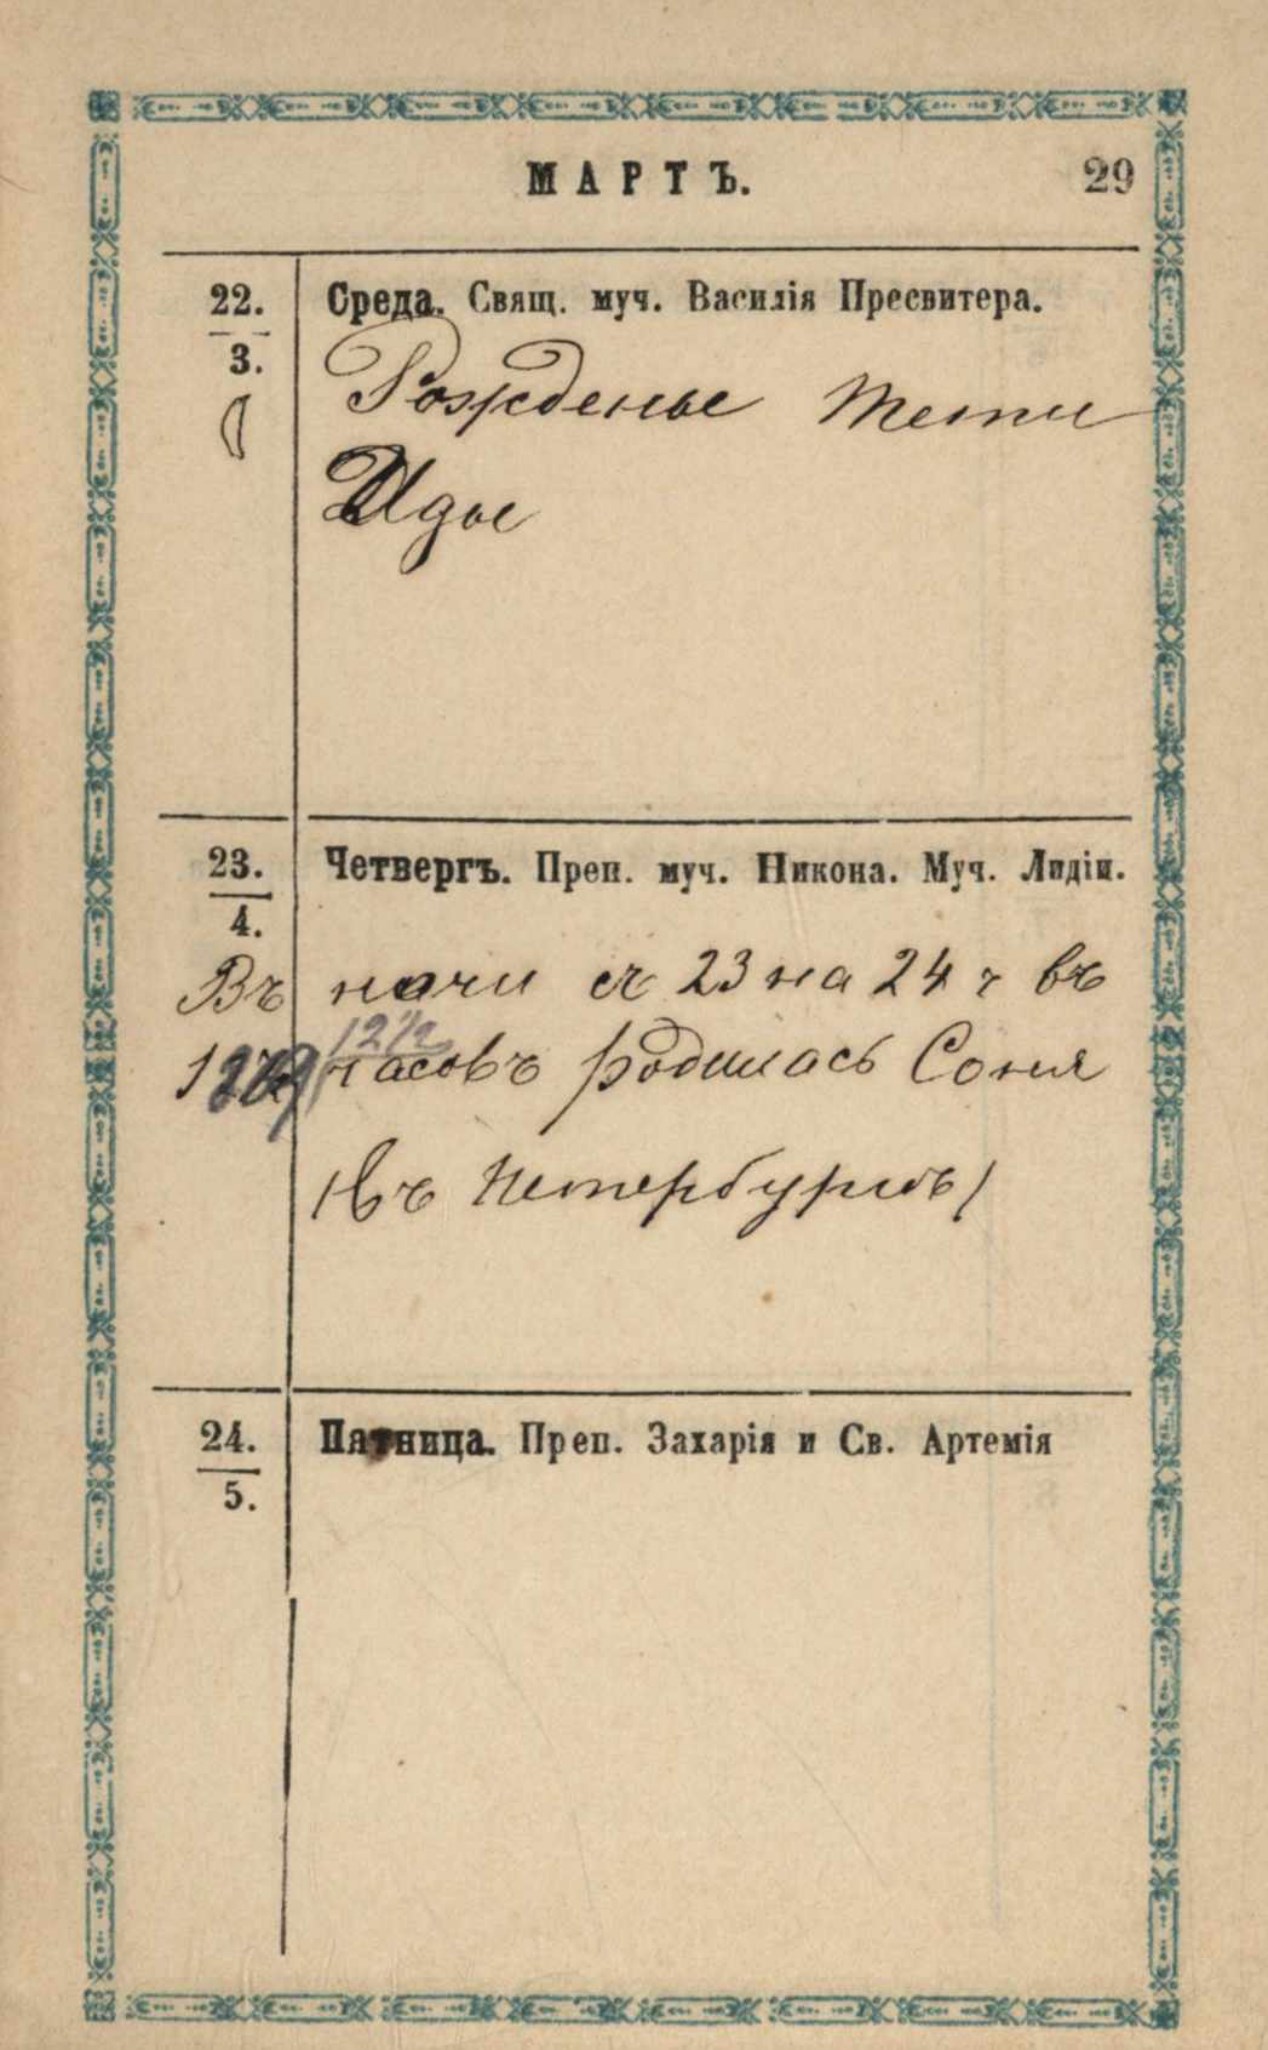 МАРТЪ.
29
22.
3.
Среда. Свящ. муч. Василія Пресвитера.
Рожденье тети
Иды
23.
4.
Четвергъ. Преп. муч. Никона. Муч. Лидіи.
Въ ночи съ 23 на 24 въ
12½
часовъ родилась Соня
(въ Петербургѣ)
24.
5.
Пятница. Преп. Захарія и Св. Артемія